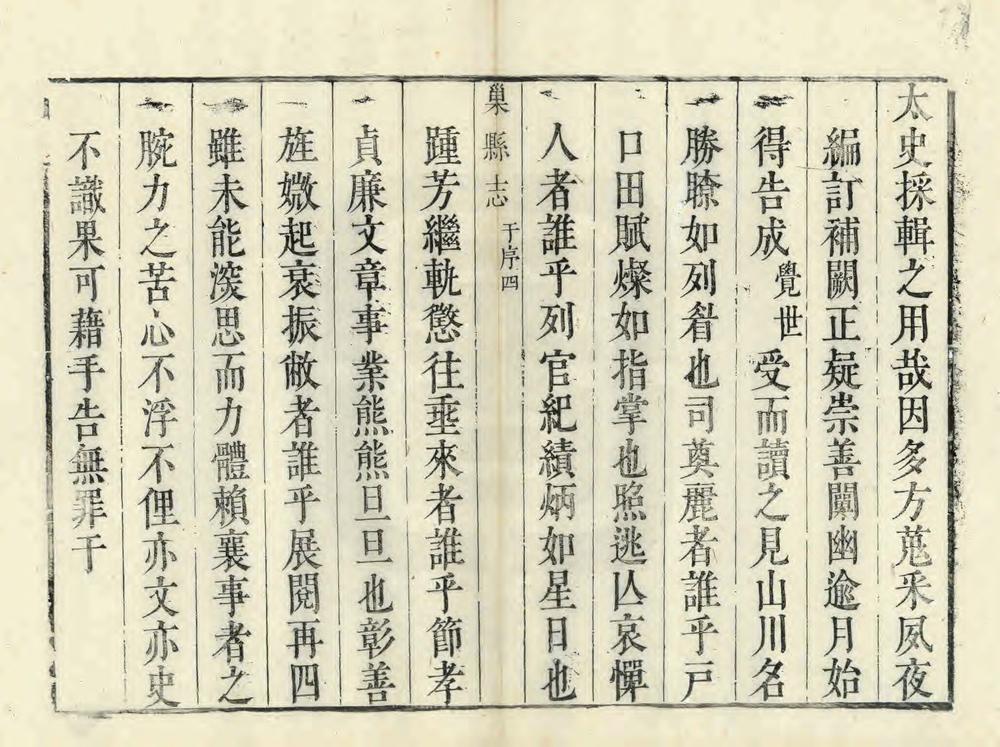 太史採輯之用哉因多方蒐釆夙夜
編訂補闕正疑崇善闡幽逾月始
得告成覺世受而讀之見山川名
勝瞭如列眉也司奠麗者誰乎戸
口田賦燦如指掌也照逃亾哀憚
人者誰乎列官紀績炳如星日也
巢縣志 于序四
踵芳繼軌懲往埀來者誰乎節孝
貞廉文章事業熊熊旦旦也彰善
旌媺起衰振敝者誰乎展閱再四
雖未能湥思而力體賴襄事者之
腕力之苦心不浮不俚亦文亦史
不識果可藉手告無罪于